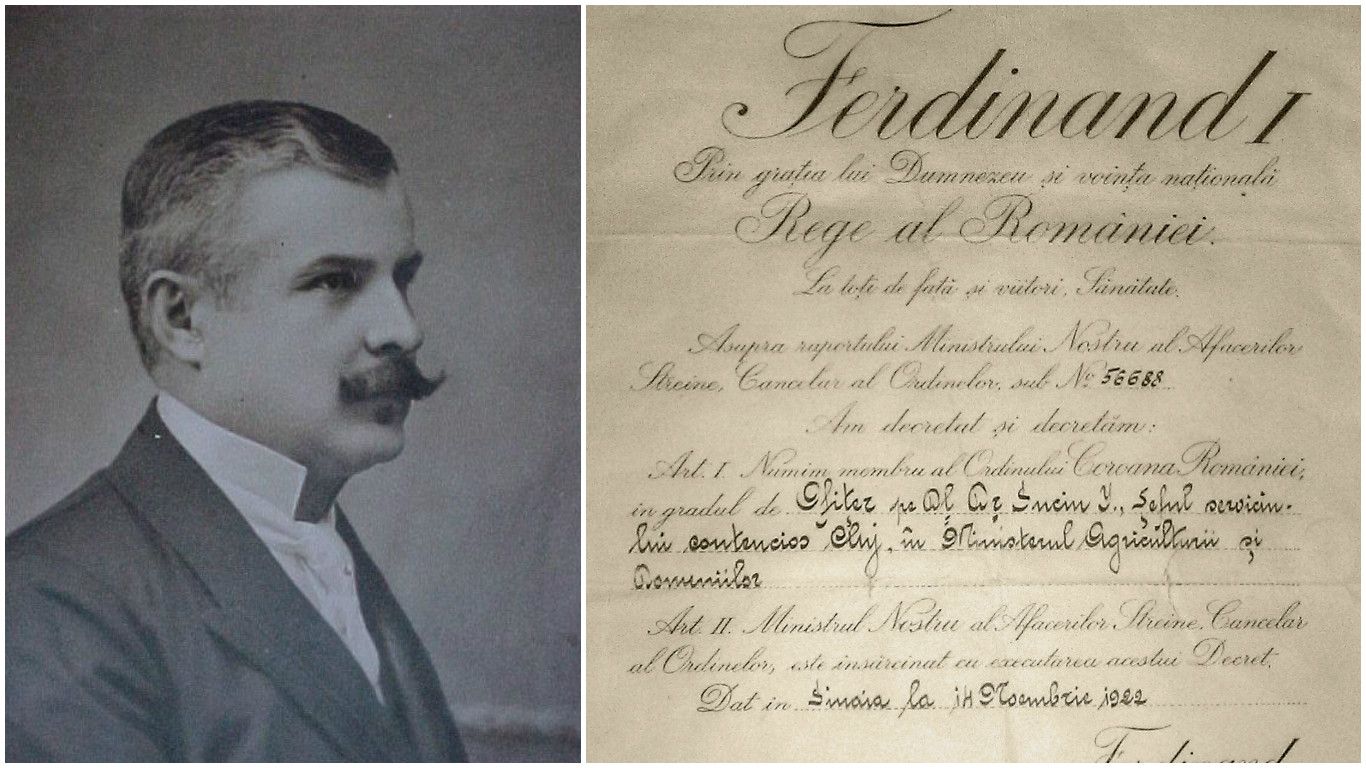 Ferdinand I
Prin grația lui Dumnezeu și voința națională
Rege al României.
La toți de față și viitori, Sănătate.
Asupra raportului Ministrului Nostru al Afacerilor
Streine, Cancelar al Ordinelor, sub No 56688
Am decretat și decretăm:
Art. I. Numim membru al Ordinului Coroana României,
in gradul de Ofițer pe Dl Dr Suciu I., Șeful serviciu-
lui contencios Cluj, în Ministerul Agriculturii și
Domeniilor
Art. II. Ministrul Nostru al Afacerilor Streine, Cancelar
al Ordinelor, este însărcinat cu executarea acestui Decret.
Dat in Sinaia la 14 Noembrie 1922
Ferdinand